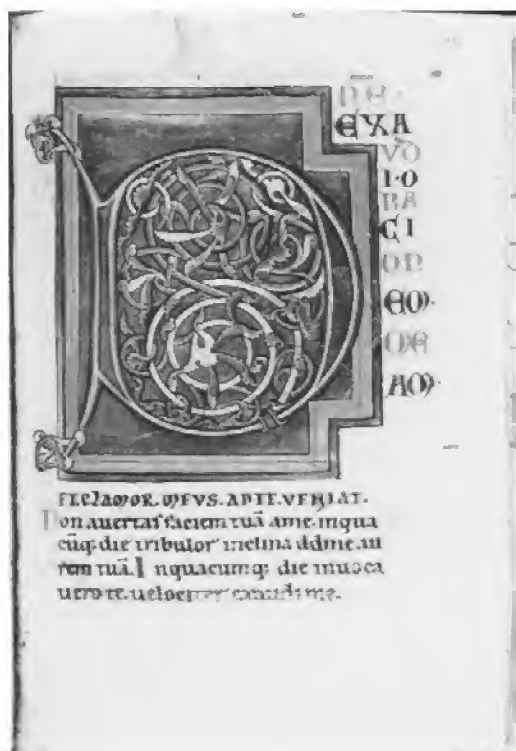 DNE
EXA
VO
I·O
RA
CI
ON
EO)·
O)E
AO)·
ET CLAMOR. MEVS. AD TE. VENIAT.
Non auertas faciem tuā ame. inqua
cūq; die tribulor inclina ad me. au
rem tuā. I nquacumq; die inuoca
uero te. uelociter exaudi me.